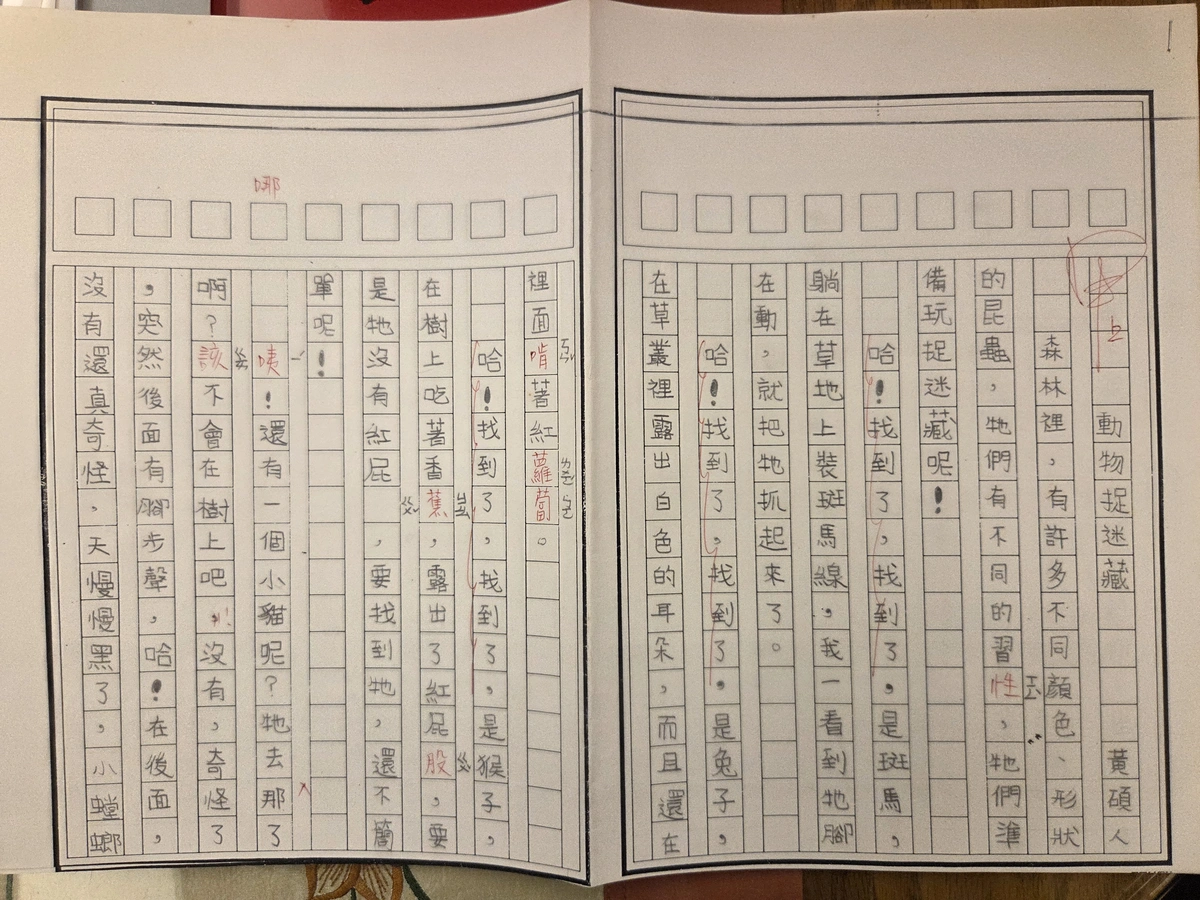 上
動物捉迷藏 黃碩人
森林裡，有許多不同顏色、形狀
的昆蟲，牠們有不同的習性，牠們準
ㄒㄧㄥˋ
備玩捉迷藏呢！
哈！找到了，找到了，是斑馬，
躺在草地上裝斑馬線，我一看到牠腳
在動，就把牠抓起來了。
哈！找到了，找到了，是兔子，
在草叢裡露出白色的耳朵，而且還在
裡面啃著紅蘿蔔。
ㄎㄣˇ
哈！找到了，找到了，是猴子，
在樹上吃著香蕉，露出了紅屁股，要
ㄐㄧㄠ
ㄍㄨˇ
是牠沒有紅屁 ，要找到牠，還不簡
ㄍㄨˇ
單呢！
咦！還有一個小貓呢？牠去那了
ㄧˊ
哪
啊？該不會在樹上吧，沒有，奇怪了
ㄍㄞ
，突然後面有腳步聲，哈！在後面，
沒有還真奇怪，天慢慢黑了，小螳螂